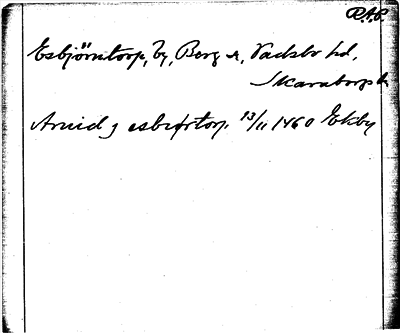 R.A.P.
Esbjörntorp, by, Berg s, Vadsbo hd,
Skaraborgs l.
Aruid j esbiortorp 13/11 1460 Ekby